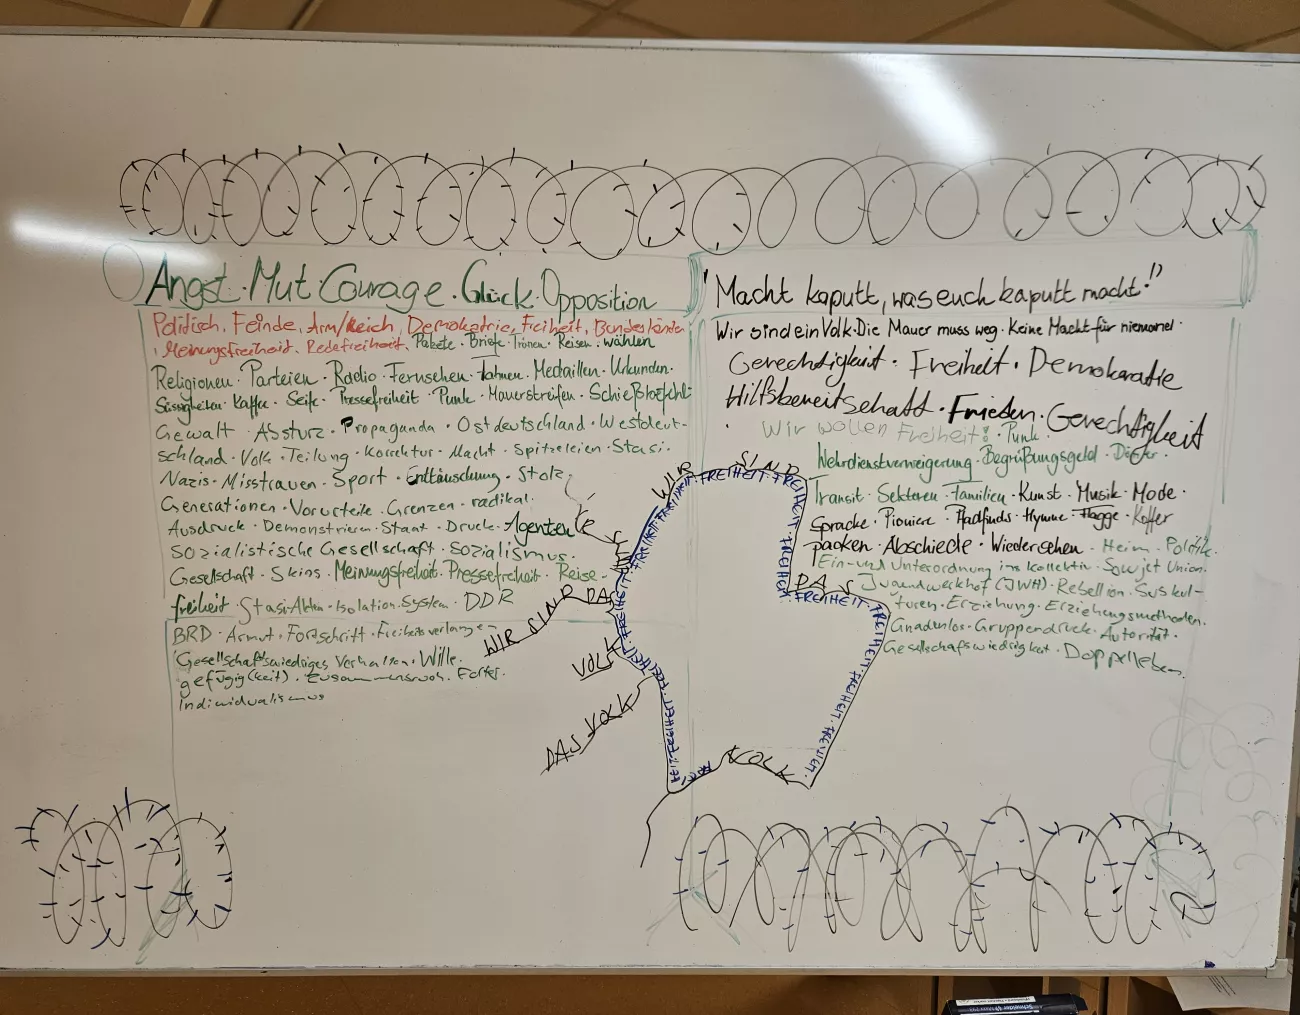 Angst · Mut · Courage · Glück · Opposition
Politisch, Feinde, Arm/Reich, Demokratie, Freiheit, Bundesländer
, Meinungsfreiheit, Redefreiheit, Pakete · Briefe · Tränen · Reisen · wählen
Religionen · Parteien · Radio · Fernsehen · Fahnen · Medaillen · Urkunden ·
Süssigkeiten · Kaffee · Seife · Pressefreiheit · Punk · Mauerstreifen · Schießbefehl ·
Gewalt · Absturz · Propaganda · Ostdeutschland · Westdeut-
schland · Volk · Teilung · Korrektur · Macht · Spitzeleien · Stasi ·
Nazis · Misstrauen · Sport · Enttäuschung · Stolz ·
Generationen · Vorurteile · Grenzen · radikal ·
Ausdruck · Demonstrieren · Staat · Druck · Agenten
sozialistische Gesellschaft · Sozialismus ·
Gesellschaft · Skins · Meinungsfreiheit · Pressefreiheit · Reise-
freiheit · Stasi-Akten · Isolation · System · DDR
BRD · Armut · Fortschritt · Freiheitsverlangen
Gesellschaftswiedriges Verhalten · Wille ·
gefügig(keit) · Zusammenbruch · Folter ·
Individualismus
"Macht kaputt, was euch kaputt macht!"
Wir sind ein Volk · Die Mauer muss weg · Keine Macht für niemand ·
Gerechtigkeit · Freiheit · Demokratie
Hilfsbereitschaft · Frieden · Gerechtigkeit
· Wir wollen Freiheit! · Punk ·
Wehrdienstverweigerung · Begrüßungsgeld ·
Transit · Sektoren · Familien · Kunst · Musik · Mode ·
Sprache · Pioniere · Pfadfinder · Hymne · Flagge · Koffer
packen · Abschiede · Wiedersehen · Heim · Politik ·
Ein- und Unterordnung ins Kollektiv · Sowjet Union ·
Jugendwerkhof (JWH) · Rebellion · Suskul-
turen · Erziehung · Erziehungsmethoden ·
Gnadenlos · Gruppendruck · Autorität ·
Gesellschaftswiedrigkeit · Doppelleben
WIR SIND DAS VOLK
FREIHEIT · FREIHEIT · FREIHEIT · FREIHEIT · FREIHEIT · FREIHEIT · FREIHEIT · FREIHEIT
WIR SIND DA
VOLK
DAS VOLK